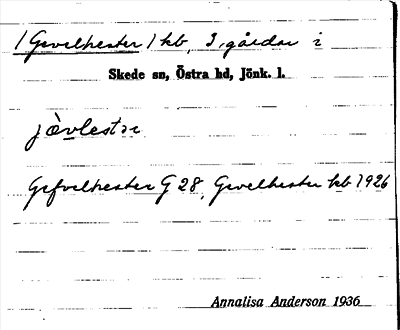 /Gevelhester/ kb, 3 gårdar i
Skede sn, Östra hd, Jönk. l.
jèvlestər
Gefvelhester G 28, Gevelhester kb 1926
Annalisa Anderson 1936